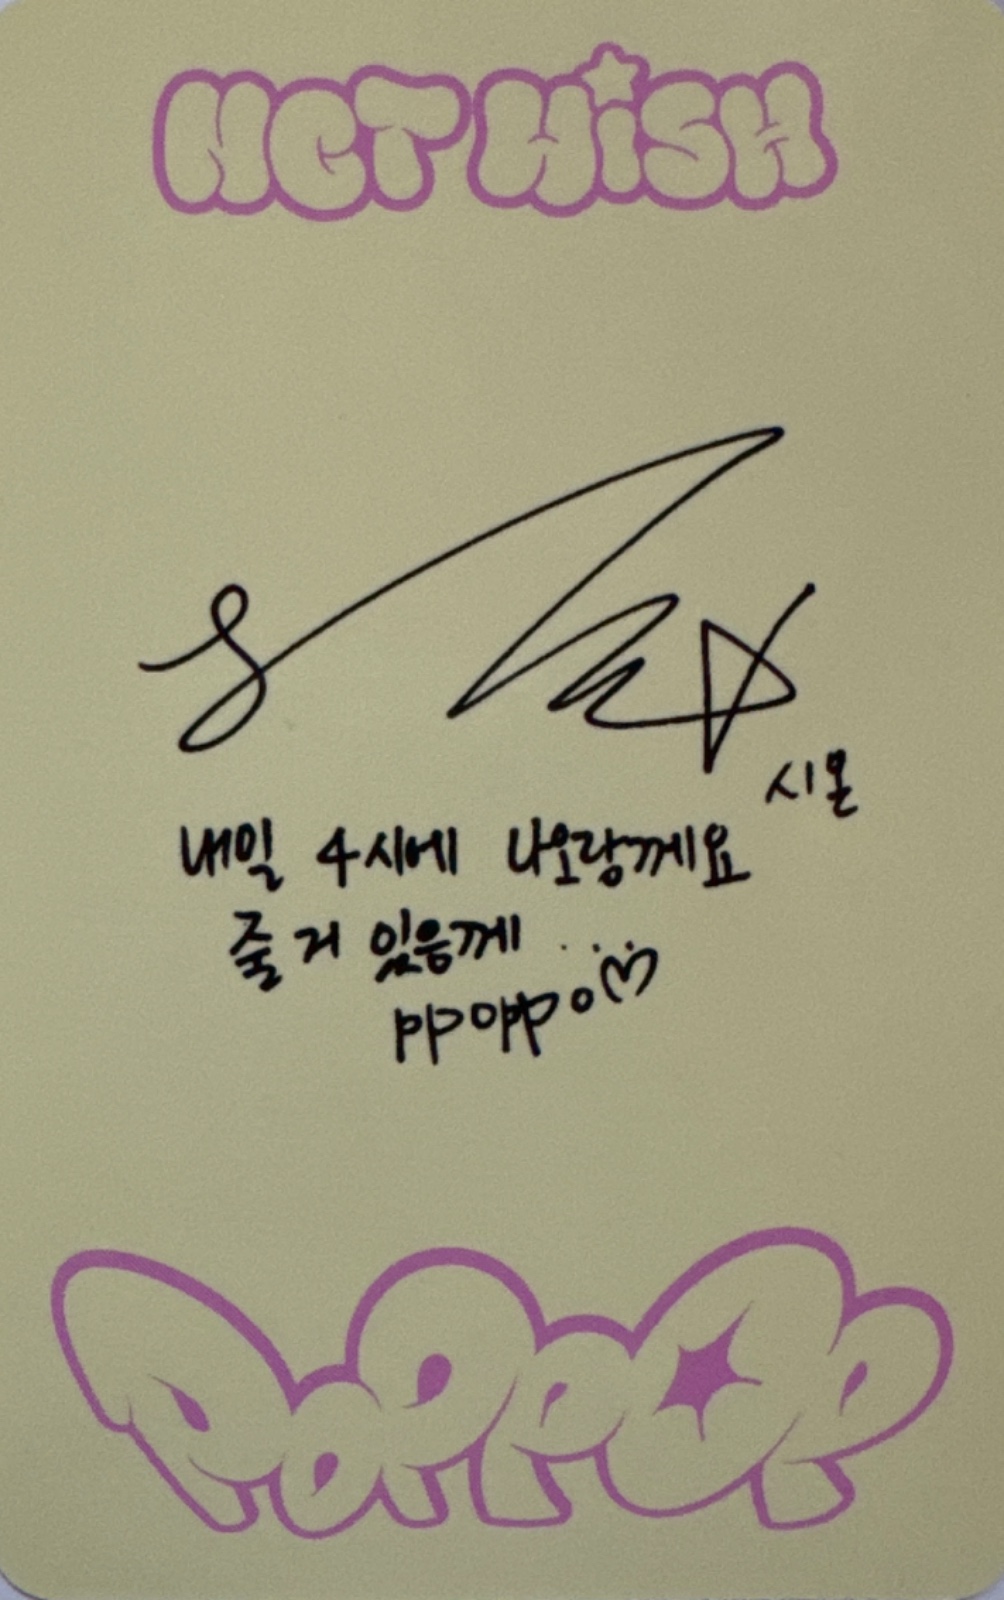 NCT WISH
시온
내일 4시에 나오랑께요
줄거 있음께...
ppoppo♡
POPPOP